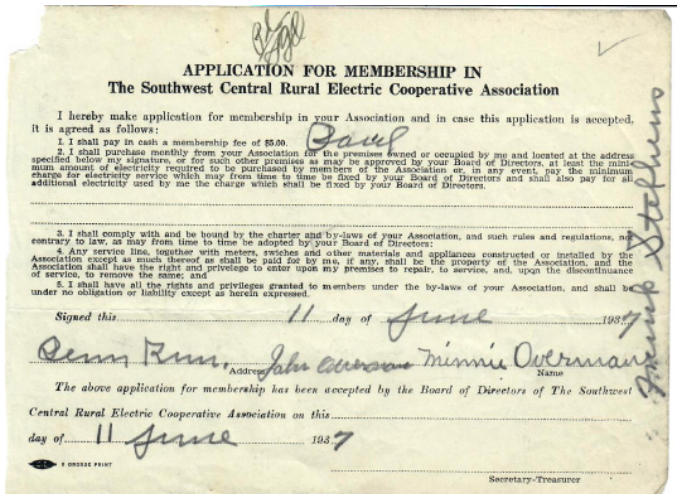 APPLICATION FOR MEMBERSHIP IN
The Southwest Central Rural Electric Cooperative Association
I hereby make application for membership in your Association and in case this application is accepted,
it is agreed as follows:
1. I shall pay in cash a membership fee of $5.00.
2. I shall purchase monthly from your Association for the premises owned or occupied by me and located at the address
specified below my signature, or for such other premises as may be approved by your Board of Directors, at least the mini-
mum amount of electricity required to be purchased by members of the Association or, in any event, pay the minimum
charge for electricity service which may from time to time be fixed by your Board of Directors and shall also pay for all
additional electricity used by me the charge which shall be fixed by your Board of Directors.
3. I shall comply with and be bound by the charter and by-laws of your Association, and such rules and regulations, not
contrary to law, as may from time to time be adopted by your Board of Directors:
4. Any service line, together with meters, swiches and other materials and appliances constructed or installed by the
Association except as much thereof as shall be paid for by me, if any, shall be the property of the Association, and the
Association shall have the right and privelege to enter upon my premises to repair, to service, and, upon the discontinuance
of service, to remove the same; and
5. I shall have all the rights and privileges granted to members under the by-laws of your Association, and shall be
under no obligation or liability except as herein expressed.
Signed this 11 day of June 1937
Penn Run, John Minnie Overman
Address Name
The above application for membership has been accepted by the Board of Directors of The Southwest
Central Rural Electric Cooperative Association on this
day of 11 June 1937
Secretary-Treasurer
Frank Stephens